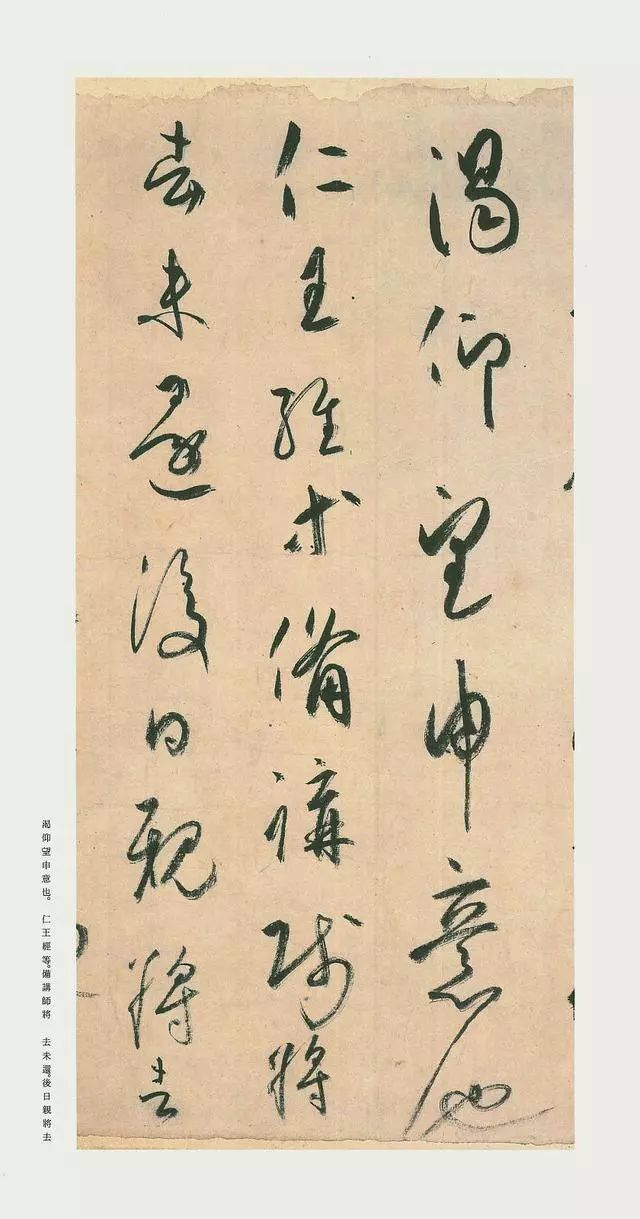 渇仰望申意也
仁王経等備講師将
去未還後日親将去
渴仰望申意也。仁王經等。備講師將 去未還。後日親將去